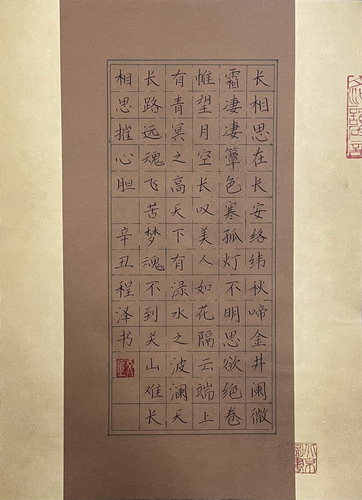 长相思在长安络纬秋啼金井阑微
霜凄凄簟色寒孤灯不明思欲绝卷
帷望月空长叹美人如花隔云端上
有青冥之高天下有渌水之波澜天
长路远魂飞苦梦魂不到关山难长
相思摧心胆 辛丑程泽书